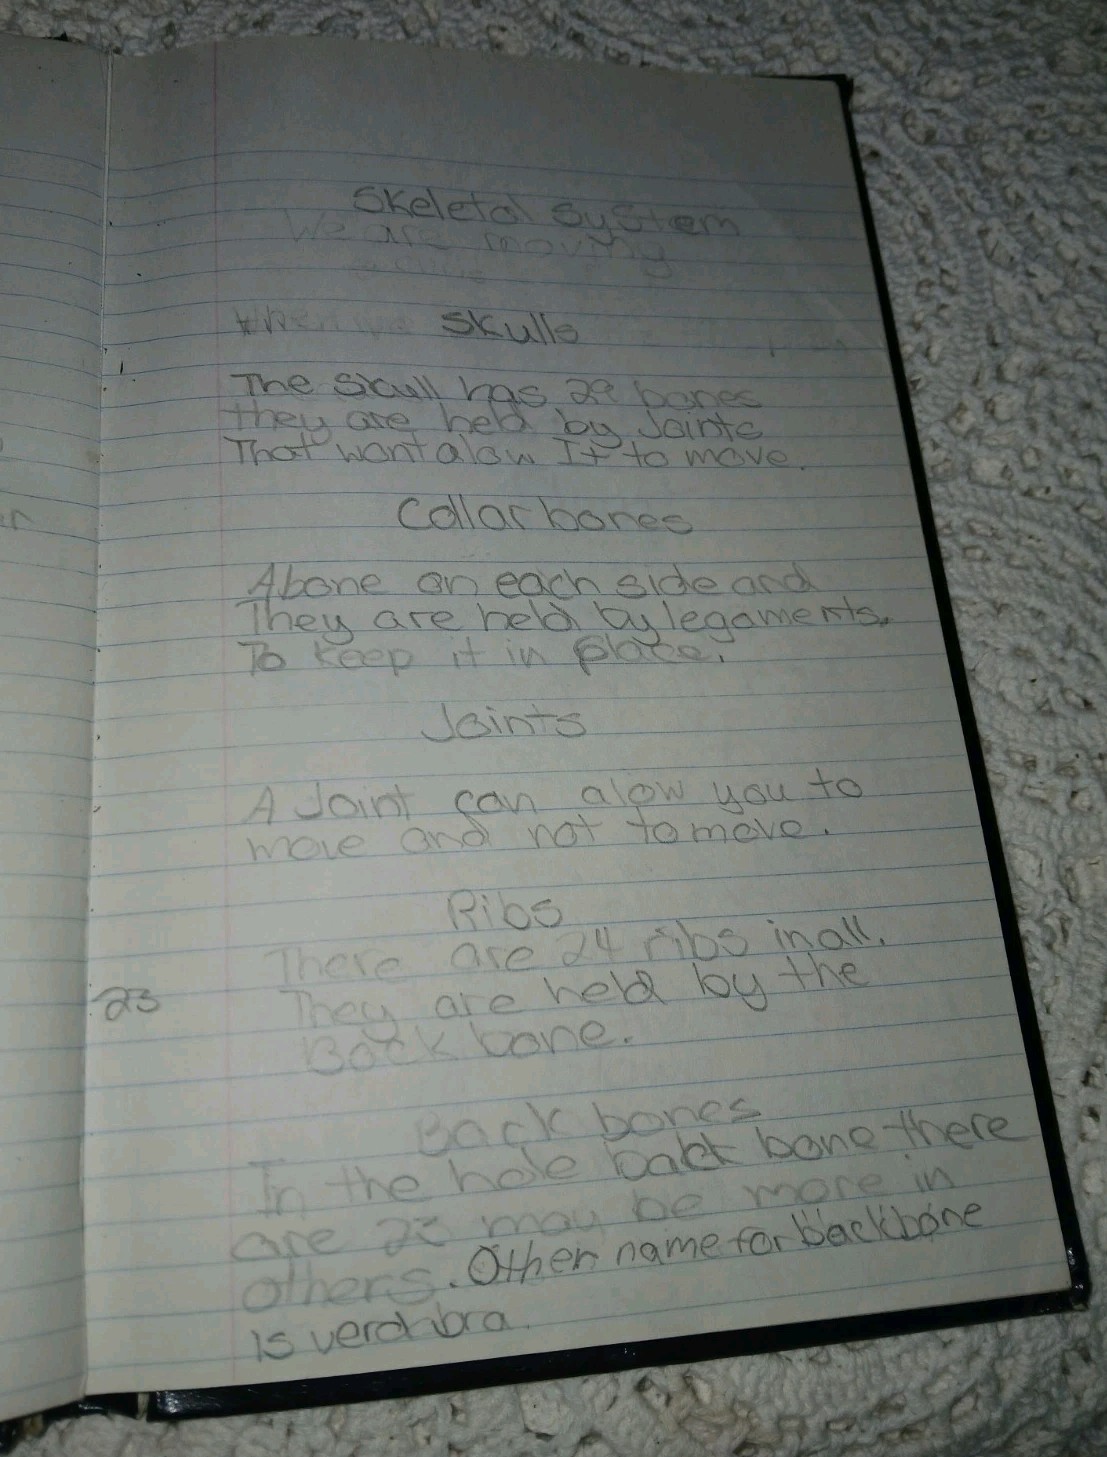 Skeletal System
We are moving
Skulls
The Skull has 29 bones
they are held by Joints
That wont alow It to move.
Collar bones
A bone on each side and
They are held by legaments.
To keep it in place.
Joints
A Joint can alow you to
move and not to move.
Ribs
There are 24 ribs in all.
23
They are held by the
Back bone.
Back bones
In the hole back bone there
are 23 may be more in
others. Other name for backbone
is verdbra.